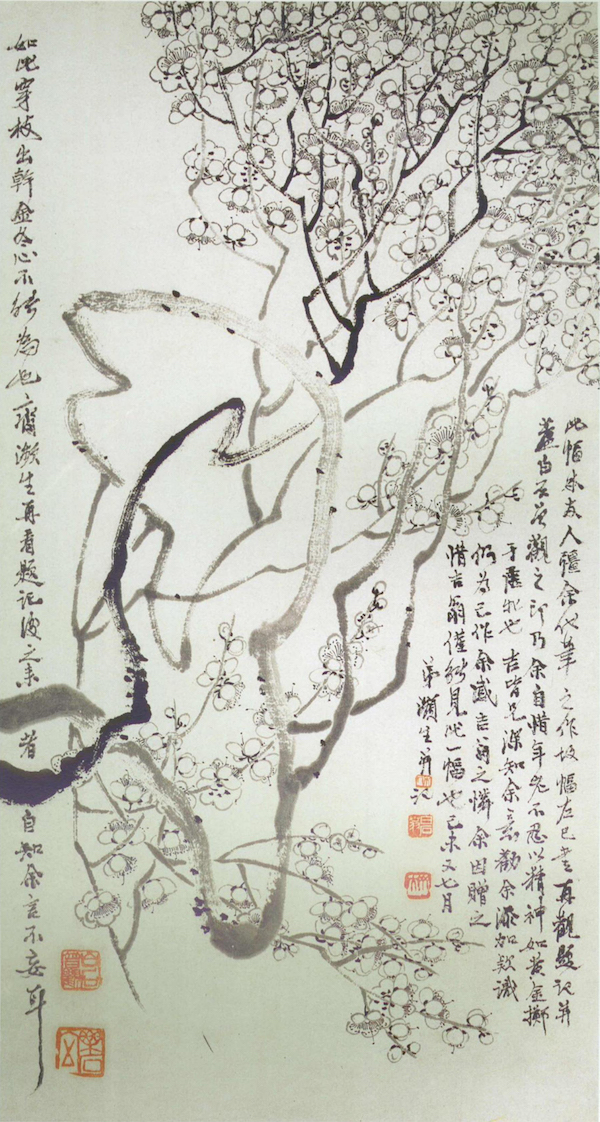 此幅為友人彊余代筆之作故幅左已書再觀題記并
蓋白石曾觀之印乃余自惜年老不忍以精神如黃金擲
于虛牝也吉皆兄深知余意勸余添加款識
仍為己作余感吉翁之憐余因贈之
惜吉翁僅能見此一幅也己未又七月
弟瀕生并記
如此穿枝出幹金冬心不能為也齊瀕生再看題記後之來者自知余言不妄耳